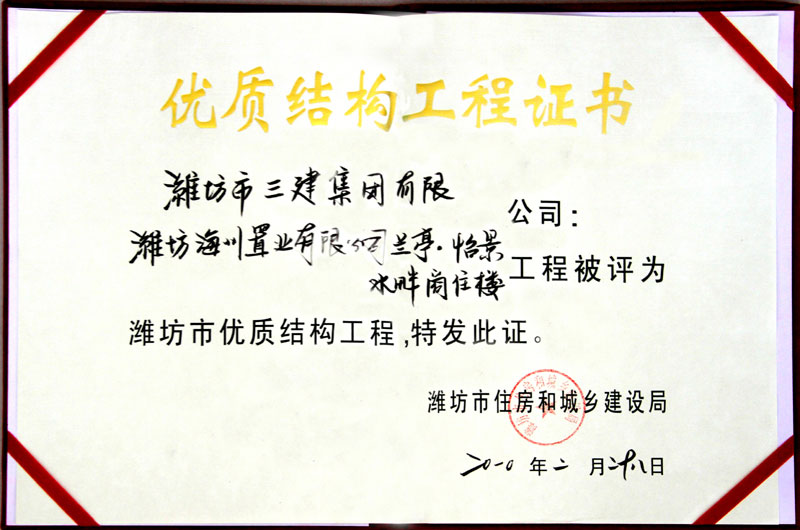 优质结构工程证书
潍坊市三建集团有限公司：
潍坊海川置业有限公司兰亭·怡景
水畔商住楼工程被评为
潍坊市优质结构工程，特发此证。
潍坊市住房和城乡建设局
二〇一〇年二月二十八日